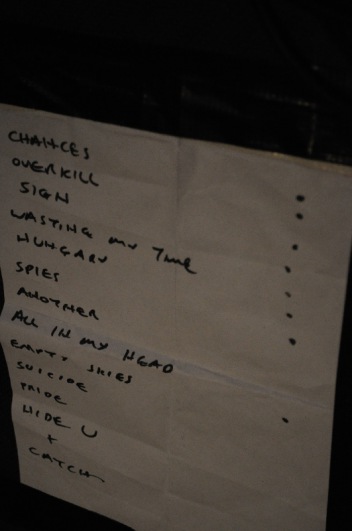 CHANCES
OVERKILL
SIGN
WASTING MY TIME
HUNGARY
SPIES
ANOTHER
ALL IN MY HEAD
EMPTY SKIES
SUICIDE
PRIDE
HIDE U
+
CATCH